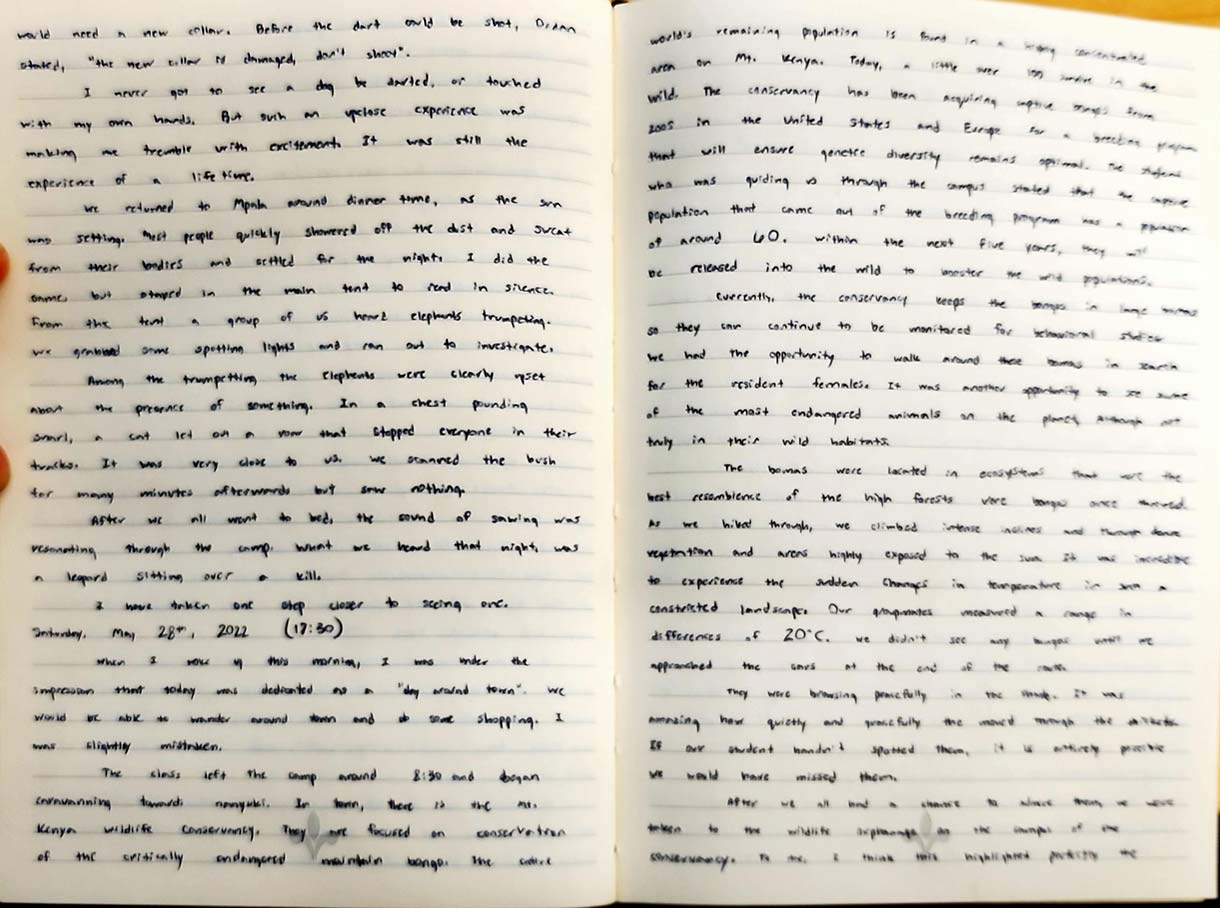 would need a new collar. Before the dart could be shot,
stated, "the new collar is damaged, don't shoot".
I never got to see a dog be darted, or touched
with my own hands. But such an upclose experience was
making me tremble with excitement. It was still the
experience of a life time.
We returned to Mpala around dinner time, as the sun
was setting. Most people quickly showered off the dust and sweat
from their bodies and settled for the night. I did the
same, but stayed in the main tent to read in silence.
From the tent a group of us heard elephants trumpeting.
We grabbed some spotting lights and ran out to investigate.
Among the trumpetting the elephants were clearly upset
about the presence of something. In a chest pounding
snarl, a cat let out a roar that stopped everyone in their
tracks. It was very close to us. We scanned the bush
for many minutes afterwards but saw nothing.
After we all went to bed, the sound of sawing was
resonating through the camp. What we heard that night, was
a leopard sitting over a kill.
I have taken one step closer to seeing one.
Saturday, May 28th, 2022 (17:30)
When I woke up this morning, I was under the
impression that today was dedicated as a "day around town". We
would be able to wander around town and do some shopping. I
was slightly mistaken.
The class left the camp around 8:30 and began
caravanning towards nanyuki. In town, there is the Mt.
Kenya wildlife conservancy. They are focused on conservation
of the critically endangered mountain bongo. The entire
world's remaining population is found in a highly concentrated
area on Mt. Kenya. Today, a little over 100 survive in the
wild. The conservancy has been acquiring captive bongos from
2005 in the United States and Europe for a breeding program
that will ensure genetic diversity remains optimal. The
who was guiding us through the campus stated that the captive
population that came out of the breeding program has a population
of around 60. Within the next five years, they will
be released into the wild to booster the wild populations.
Currently, the conservancy keeps the bongos in large bomas
so they can continue to be monitored for behavioral studies
We had the opportunity to walk around these bomas in search
for the resident females. It was another opportunity to see some
of the most endangered animals on the planet, although not
truly in their wild habitats.
The bomas were located in ecosystems that were the
best resemblence of the high forests were bongos once thrived.
As we hiked through, we climbed intense inclines and through dense
vegetation and areas highly exposed to the sun. It was incredible
to experience the sudden changes in temperature in such a
constricted landscape. Our groupmates measured a range in
differences of 20°C. We didn't see any bongos until we
approached the ones at the end of the
They were browsing peacefully in the shade. It was
amazing how quietly and gracefully the moved through the
If our student hadn't spotted them, it is entirely possible
we would have missed them.
After we all had a chance to them, we were
taken to the wildlife orphanage on the campus of the
conservancy. To me, I think this highlighted perfectly the